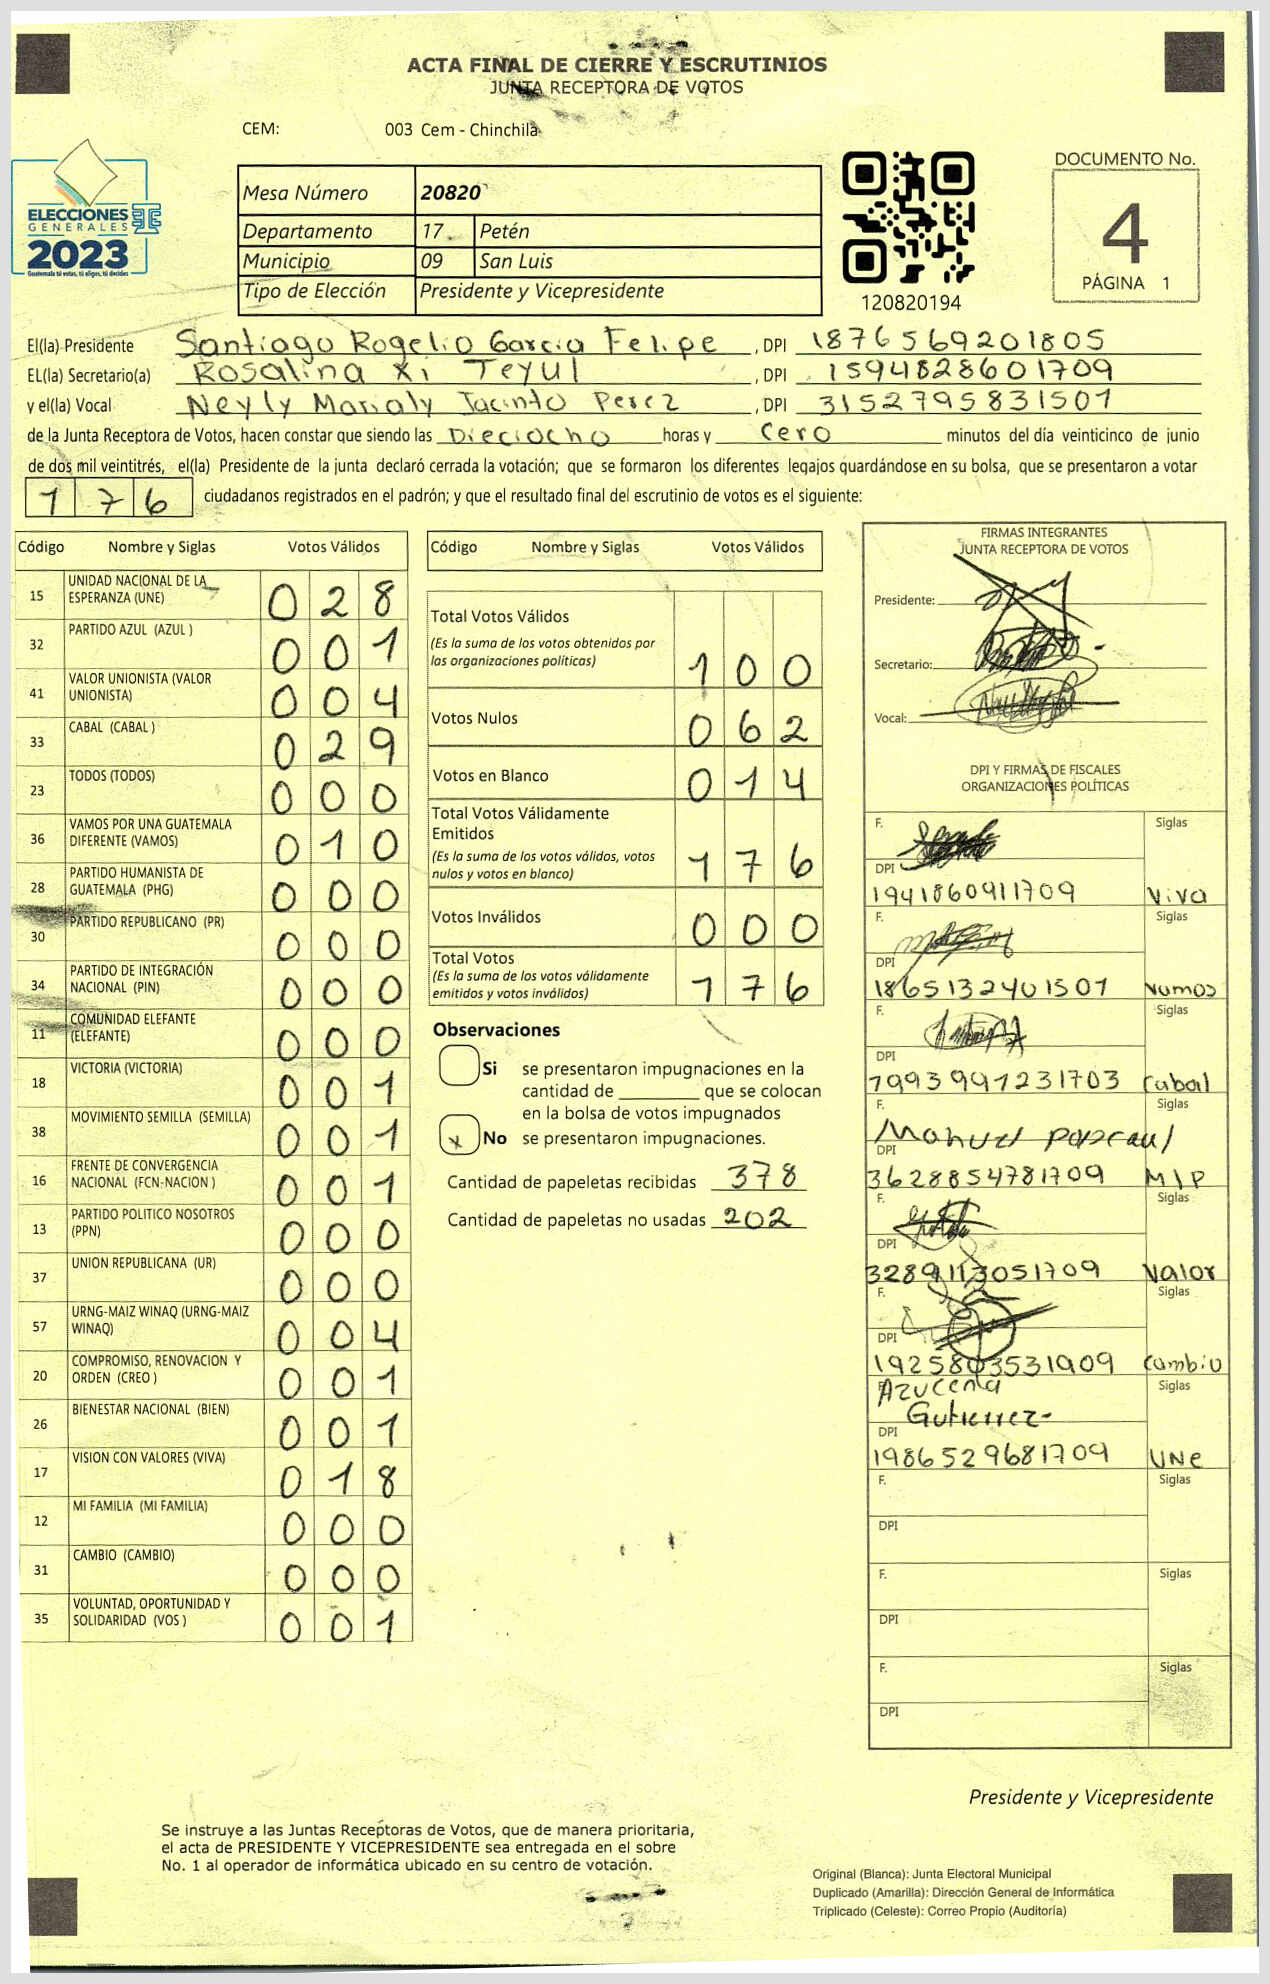 ACTA FINAL DE CIERRE Y ESCRUTINIOS
JUNTA RECEPTORA DE VOTOS
CEM: 003 Cem - Chinchilá
ELECCIONES
GENERALES
2023
Guatemala tú votas, tú eliges, tú decides
Mesa Número 20820
Departamento 17 Petén
Municipio 09 San Luis
Tipo de Elección Presidente y Vicepresidente
120820194
DOCUMENTO No.
4
PÁGINA 1
El(la) Presidente Santiago Rogelio Garcia Felipe , DPI 1876569201805
EL(la) Secretario(a) Rosalina Xi Teyul , DPI 1594828601709
y el(la) Vocal Neyly Marialy Jacinto Perez , DPI 3152795831501
de la Junta Receptora de Votos, hacen constar que siendo las Dieciocho horas y cero minutos del día veinticinco de junio
de dos mil veintitrés, el(la) Presidente de la junta declaró cerrada la votación; que se formaron los diferentes legajos guardándose en su bolsa, que se presentaron a votar
176 ciudadanos registrados en el padrón; y que el resultado final del escrutinio de votos es el siguiente:
Código Nombre y Siglas Votos Válidos
15 UNIDAD NACIONAL DE LA ESPERANZA (UNE) 028
32 PARTIDO AZUL (AZUL ) 001
41 VALOR UNIONISTA (VALOR UNIONISTA) 004
33 CABAL (CABAL ) 029
23 TODOS (TODOS) 000
36 VAMOS POR UNA GUATEMALA DIFERENTE (VAMOS) 010
28 PARTIDO HUMANISTA DE GUATEMALA (PHG) 000
30 PARTIDO REPUBLICANO (PR) 000
34 PARTIDO DE INTEGRACIÓN NACIONAL (PIN) 000
11 COMUNIDAD ELEFANTE (ELEFANTE) 000
18 VICTORIA (VICTORIA) 001
38 MOVIMIENTO SEMILLA (SEMILLA) 001
16 FRENTE DE CONVERGENCIA NACIONAL (FCN-NACION ) 001
13 PARTIDO POLITICO NOSOTROS (PPN) 000
37 UNION REPUBLICANA (UR) 000
57 URNG-MAIZ WINAQ (URNG-MAIZ WINAQ) 004
20 COMPROMISO, RENOVACION Y ORDEN (CREO ) 001
26 BIENESTAR NACIONAL (BIEN) 001
17 VISION CON VALORES (VIVA) 018
12 MI FAMILIA (MI FAMILIA) 000
31 CAMBIO (CAMBIO) 000
35 VOLUNTAD, OPORTUNIDAD Y SOLIDARIDAD (VOS ) 001
Código Nombre y Siglas Votos Válidos
Total Votos Válidos
(Es la suma de los votos obtenidos por
las organizaciones políticas) 100
Votos Nulos 062
Votos en Blanco 014
Total Votos Válidamente
Emitidos
(Es la suma de los votos válidos, votos
nulos y votos en blanco) 176
Votos Inválidos 000
Total Votos
(Es la suma de los votos válidamente
emitidos y votos inválidos) 176
Observaciones
Si se presentaron impugnaciones en la
cantidad de ________ que se colocan
en la bolsa de votos impugnados
x No se presentaron impugnaciones.
Cantidad de papeletas recibidas 378
Cantidad de papeletas no usadas 202
FIRMAS INTEGRANTES
JUNTA RECEPTORA DE VOTOS
Presidente:
Secretario:
Vocal:
DPI Y FIRMAS DE FISCALES
ORGANIZACIONES POLÍTICAS
F. Siglas
DPI
1941860911709 Viva
F. Siglas
DPI
1865132401501 Vamos
F. Siglas
DPI
1993991231703 Cabal
F. Siglas
Manuel
DPI
3628854781709 MLP
F. Siglas
DPI
3289113051709 Valor
F. Siglas
DPI
1925803531909 Cambio
Azucena Siglas
Gutierrez
DPI
1986529681709 UNE
F. Siglas
DPI
F. Siglas
DPI
F. Siglas
DPI
Presidente y Vicepresidente
Se instruye a las Juntas Receptoras de Votos, que de manera prioritaria,
el acta de PRESIDENTE Y VICEPRESIDENTE sea entregada en el sobre
No. 1 al operador de informática ubicado en su centro de votación.
Original (Blanca): Junta Electoral Municipal
Duplicado (Amarilla): Dirección General de Informática
Triplicado (Celeste): Correo Propio (Auditoría)